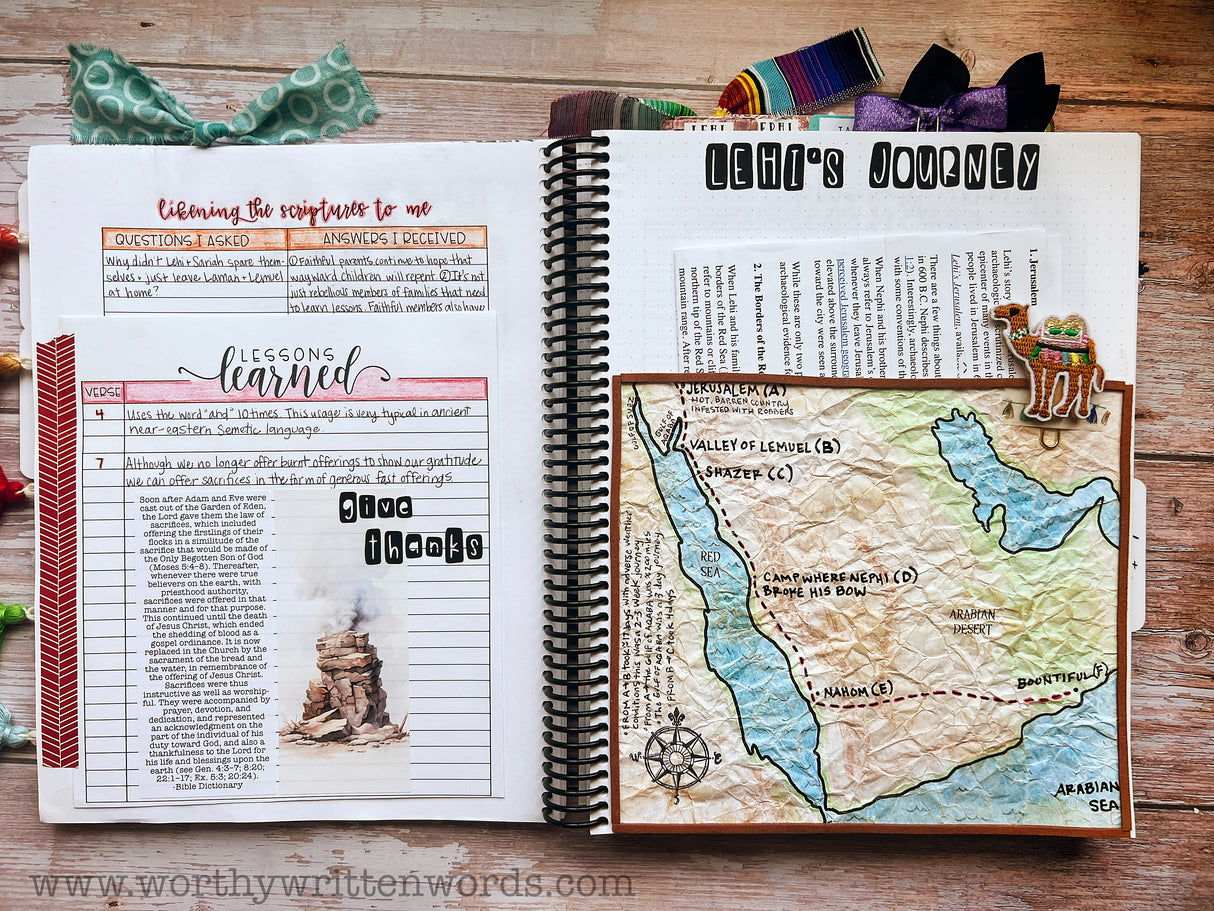 LEHI EPHI
likening the scriptures to me
QUESTIONS I ASKED
Why didn't Lehi + Sariah spare them-
selves + just leave Laman + Lemuel
at home?
ANSWERS I RECEIVED
① Faithful parents continue to hope that
wayward children will repent. ② It's not
just rebellious members of families that need
to learn lessons. Faithful members also have
LESSONS
learned
VERSE
4 Uses the word "and" 10 times. This usage is very typical in ancient
near-eastern Semetic language.
7 Although we no longer offer burnt offerings to show our gratitude
we can offer sacrifices in the form of generous fast offerings.
Soon after Adam and Eve were
cast out of the Garden of Eden,
the Lord gave them the law of
sacrifices, which included
offering the firstlings of their
flocks in a similitude of the
sacrifice that would be made of
the Only Begotten Son of God
(Moses 5:4-8). Thereafter,
whenever there were true
believers on the earth, with
priesthood authority,
sacrifices were offered in that
manner and for that purpose.
This continued until the death
of Jesus Christ, which ended
the shedding of blood as a
gospel ordinance. It is now
replaced in the Church by the
sacrament of the bread and
the water, in remembrance of
the offering of Jesus Christ.
Sacrifices were thus
instructive as well as worship-
ful. They were accompanied by
prayer, devotion, and
dedication, and represented
an acknowledgment on the
part of the individual of his
duty toward God, and also a
thankfulness to the Lord for
his life and blessings upon the
earth (see Gen. 4:3-7; 8:20;
22:1-17; Ex. 5:3; 20:24).
-Bible Dictionary
give
thanks
LEHI'S JOURNEY
1. Jerusalem
Lehi's story
archaeologic
epicenter of many events in the
people lived in Jerusalem
Lehi's Jerusalem,
There are a few things about
in 600 B.C. Nephi describes
1:2). Interestingly, archaeolo
with some conventions of th
When Nephi and his brother
always refer to Jerusalem's
whenever they leave Jerusa
perceived Jerusalem geogra
elevated above the surround
toward the city were seen a
While these are only two p
archaeological evidence fo
2. The Borders of the Re
When Lehi and his famil
borders of the Red Sea (
refer to mountains or clif
northern tip of the Red S
mountain range. After r
JERUSALEM (A)
HOT, BARREN COUNTRY
INFESTED WITH ROBBERS
GULF OF SUEZ
GULF OF AQABA
VALLEY OF LEMUEL (B)
SHAZER (C)
RED
SEA
CAMP WHERE NEPHI (D)
BROKE HIS BOW
ARABIAN
DESERT
NAHOM (E)
BOUNTIFUL (F)
ARABIAN
SEA
• FROM A→B TOOK ≈ 17 days with adverse weather
conditions this was a 2-3 week journey
• FROM A→the GULF OF AQABA was ≈ 200 miles
• The GULF OF AQABA was a 3 day journey
• FROM B→C took 4 days
W E
www.worthywrittenwords.com